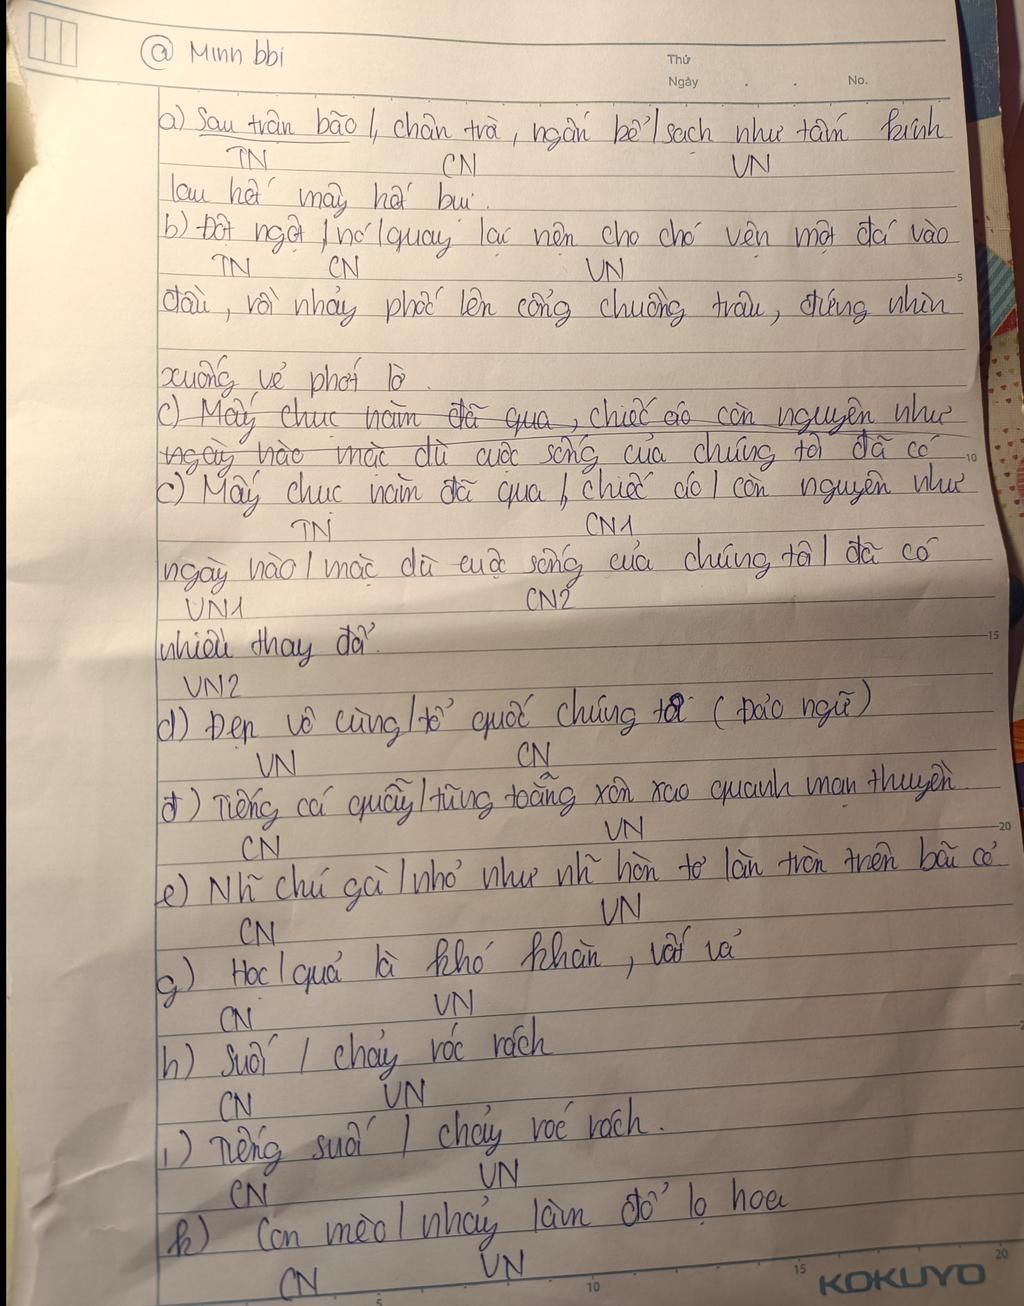 @ Minh bbi
Thứ
Ngày . . No.
a) Sau trận bão /, chân trời, ngấn bể / sạch như tấm kính
TN CN VN
lau hết mây hết bụi.
b) Đột ngột / nó / quay lại nện cho chó vện một đá vào
TN CN VN
5
đầu, rồi nhảy phốc lên cổng chuồng trâu, đứng nhìn
xuống vẻ phớt lờ.
c) Mấy chục năm đã qua, chiếc áo còn nguyên như
ngày nào mặc dù cuộc sống của chúng tôi đã có
10
c) Mấy chục năm đã qua /, chiếc áo / còn nguyên như
TN CN1
ngày nào / mặc dù cuộc sống của chúng tôi / đã có
VN1 CN2
nhiều thay đổi.
15
VN2
d) Đẹp vô cùng / tổ quốc chúng ta (Đảo ngữ)
VN CN
đ) Tiếng cá quẫy / tũng toẵng xôn xao quanh mạn thuyền.
CN VN
20
e) Nh~ chú gà / nhỏ như nh~ hòn tơ lăn tròn trên bãi cỏ
CN VN
g) Học / quả là khó khăn, vất vả
CN VN
h) Suối / chảy róc rách
CN VN
i) Tiếng suối / chảy róc rách.
CN VN
k) Con mèo / nhảy làm đổ lọ hoa
CN VN
5 10 15 20
KOKUYO